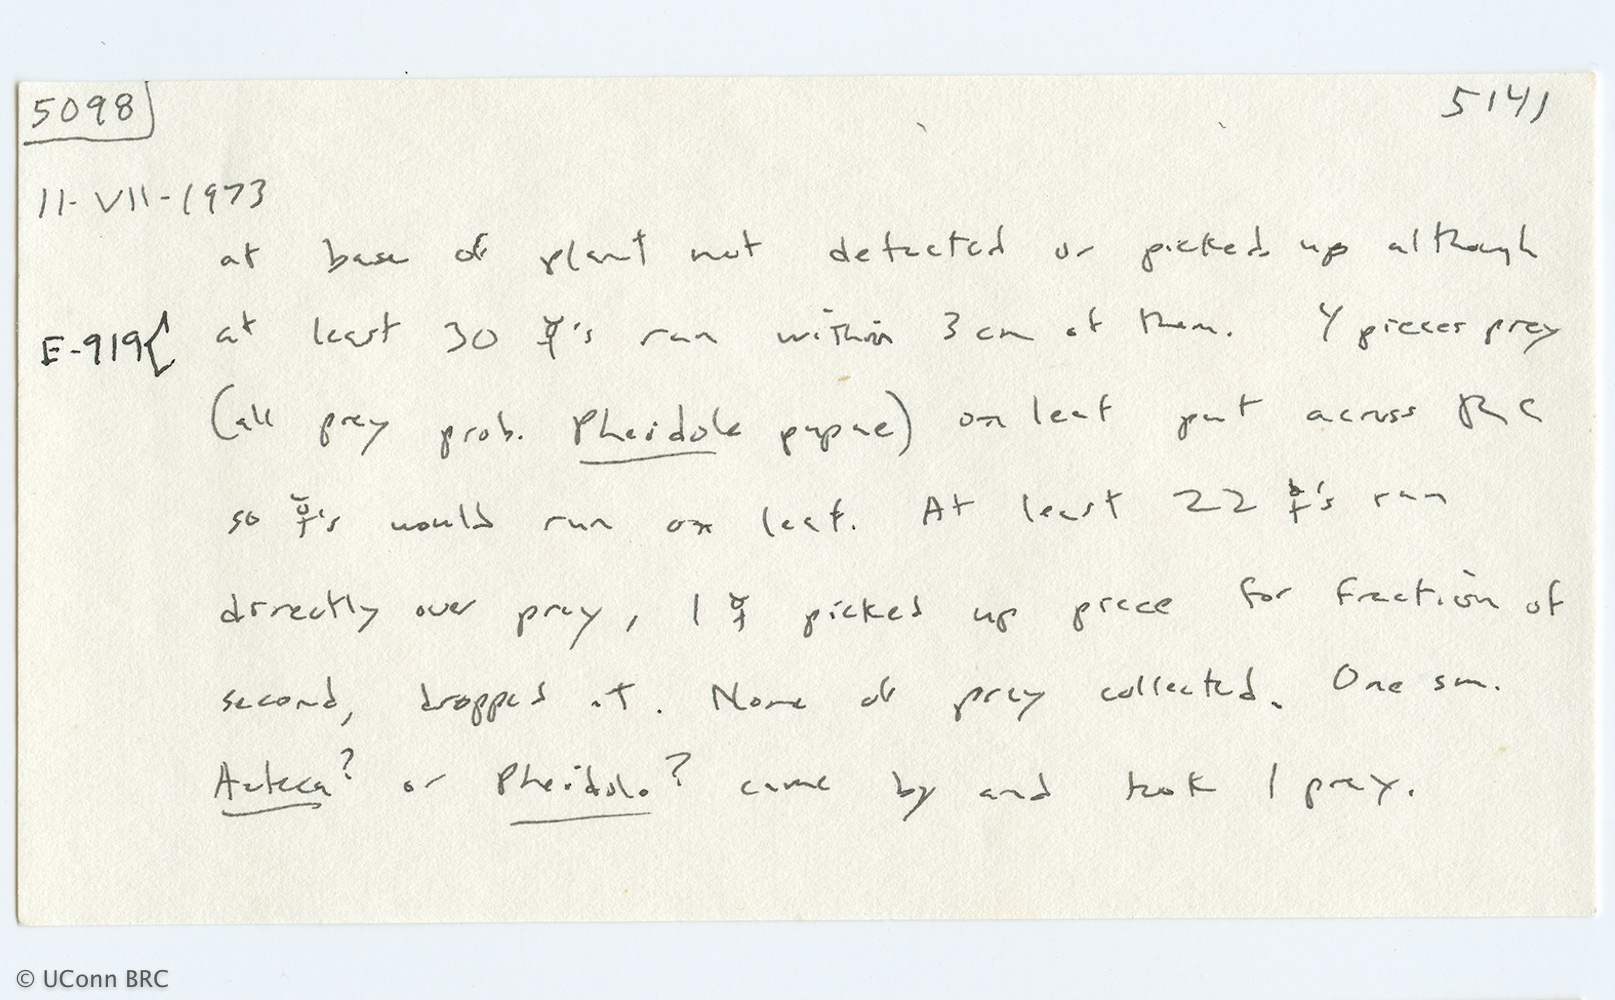 5098
5141
11-VII-1973
at base of plant not detected or picked up although
E-919{ at least 30 ☿'s ran within 3 cm of them. 4 pieces prey
(all prey prob. Pheidole pupae) on leaf put across RC
so ☿'s would run on leaf. At least 22 ☿'s ran
directly over prey, 1 ☿ picked up piece for fraction of
second, dropped it. None of prey collected. One sm.
Azteca? or Pheidole? came by and took 1 prey.
© UConn BRC